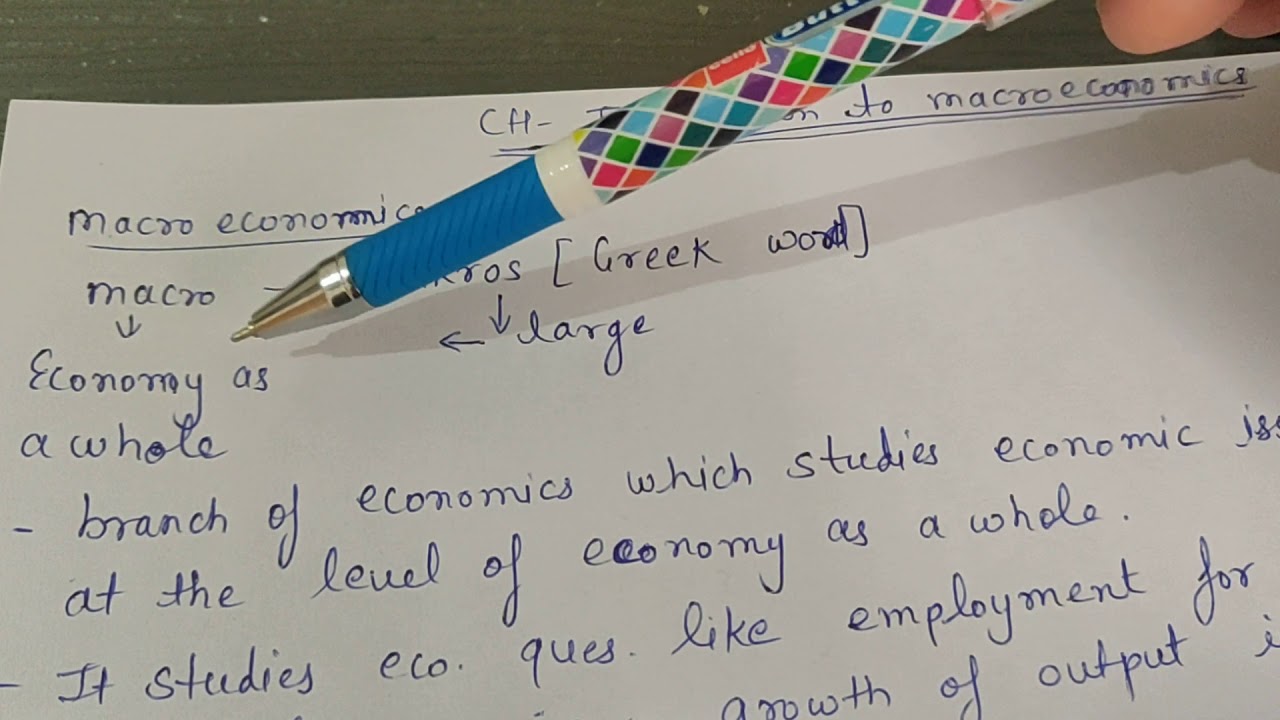 cello
Butt
CH- I on to macroeconomics
Macro economics
macro - kros [Greek word]
↓ ← ↓ large
Economy as
a whole
- branch of economics which studies economic iss
at the level of economy as a whole.
- It studies eco. ques. like employment for
growth of output i